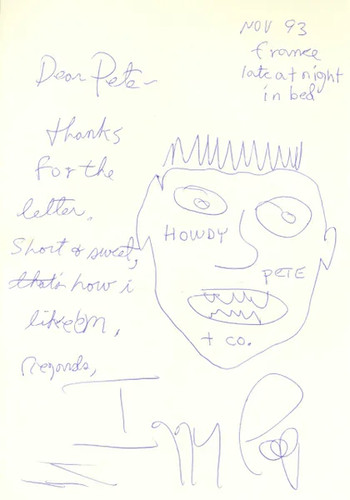 NOV 93
france
late at night
in bed
Dear Pete-
thanks
for the
letter.
Short & sweet,
that's how i
like em,
regards,
HOWDY
PETE
+ co.
Iggy Pop